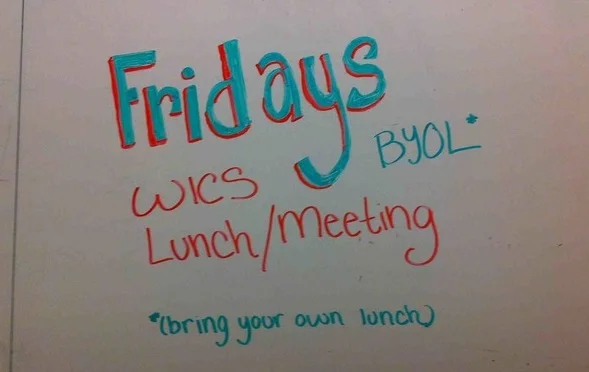 Fridays
BYOL*
WICS
Lunch/Meeting
*(bring your own lunch)